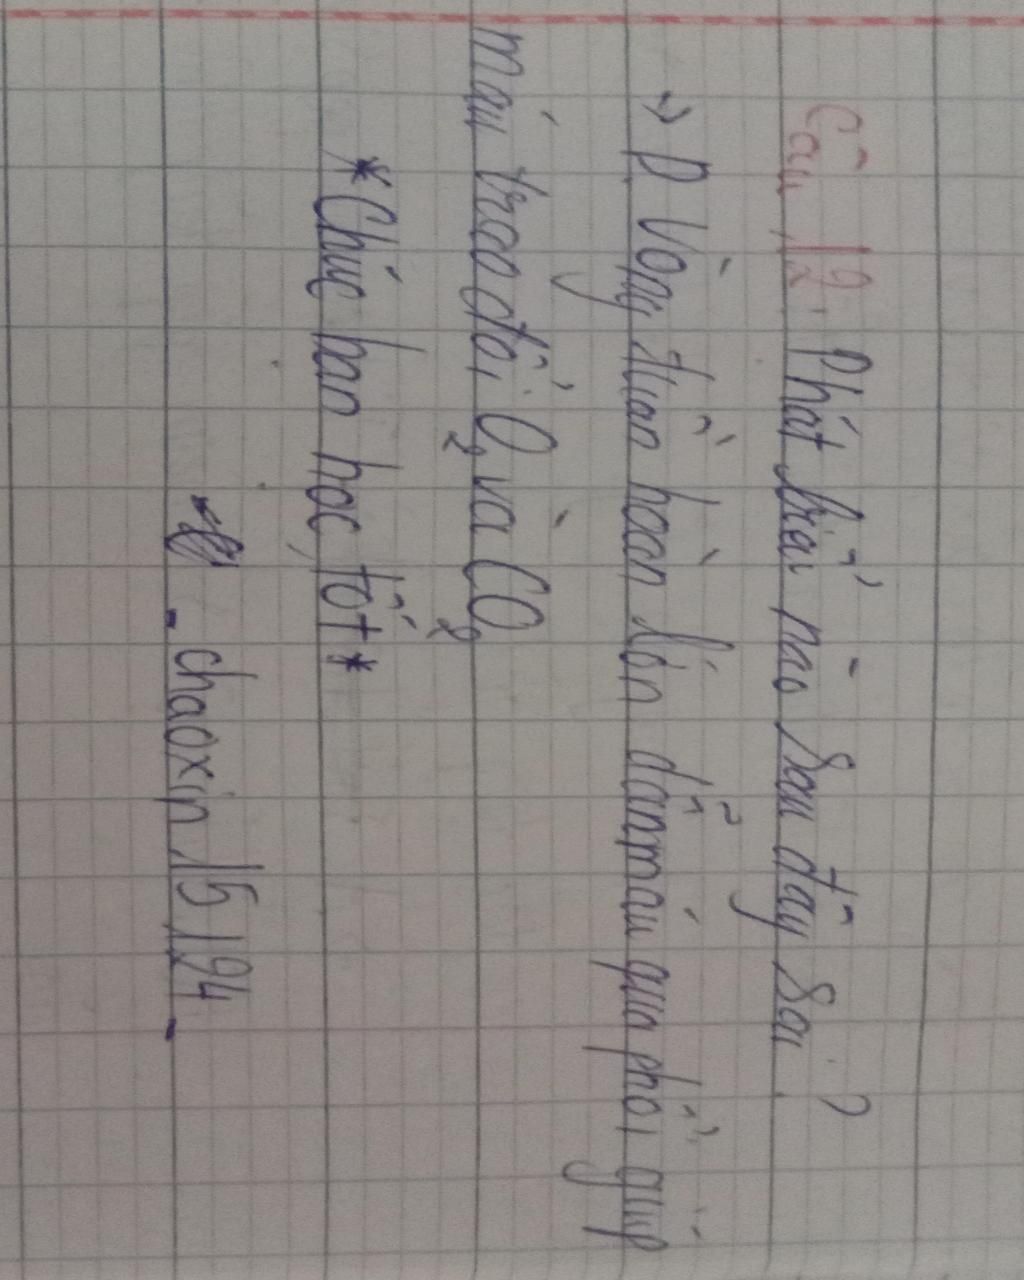 Câu 12. Phát biểu nào sau đây sai?
=> D Vòng tuần hoàn lớn dẫn máu qua phổi giúp
máu trao đổi O₂ và CO₂
*Chúc bạn học tốt*
- chaoxin 15 194 -